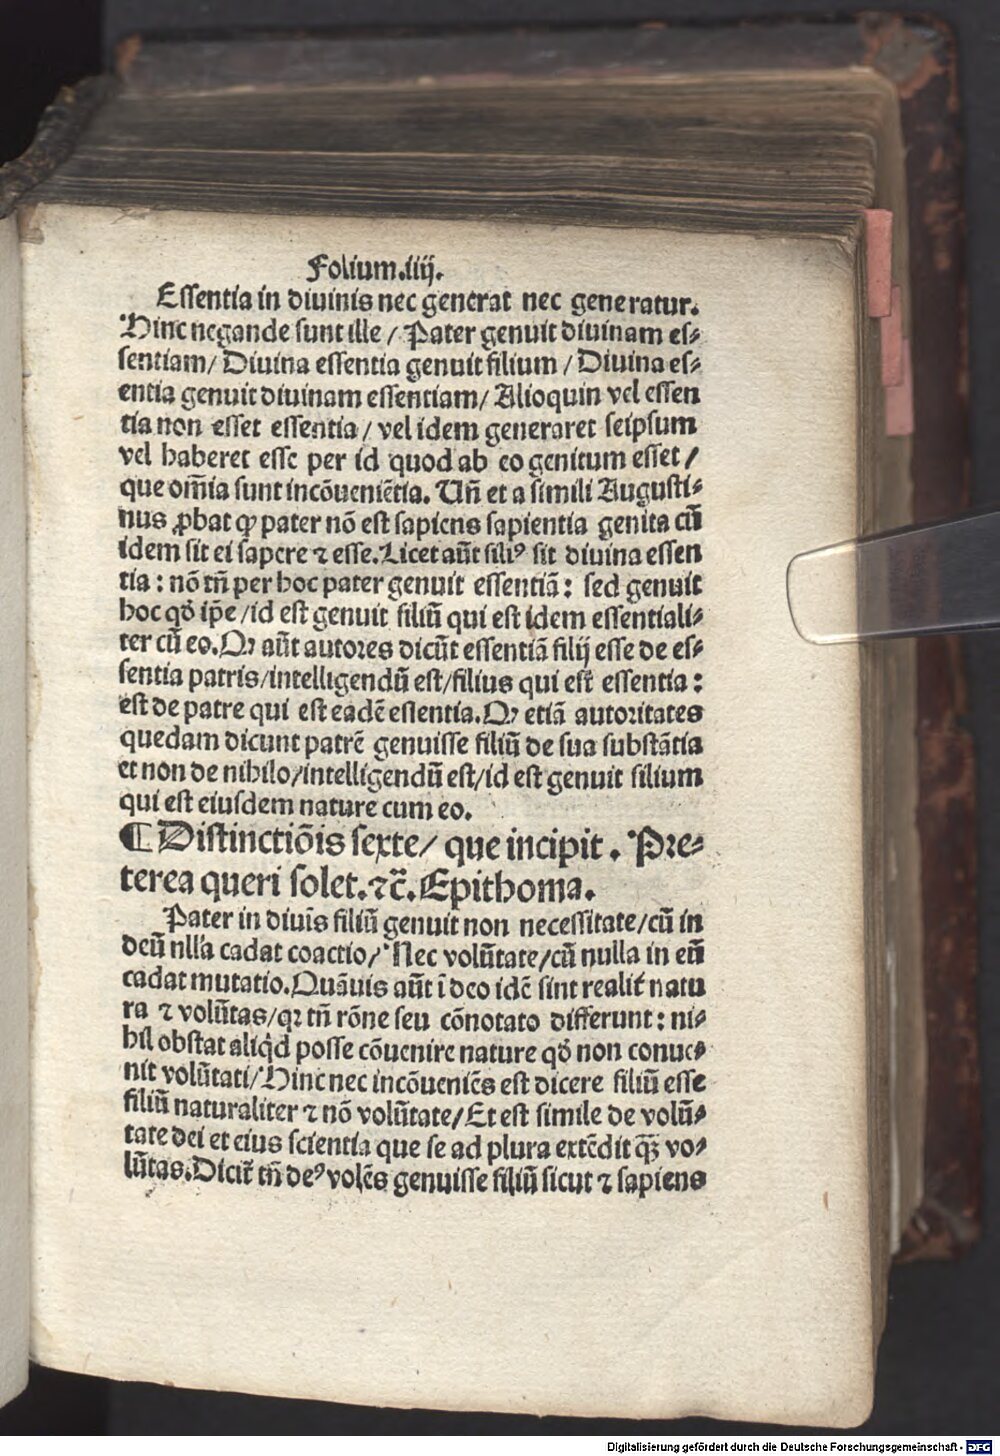 Folium.iiij.
Essentia in diuinis nec generat nec generatur.
Hinc negande sunt ille / Pater genuit diuinam es⸗
sentiam / Diuina essentia genuit filium / Diuina es⸗
entia genuit diuinam essentiam / Alioquin vel essen
tia non esset essentia / vel idem generaret seipsum
vel haberet esse per id quod ab eo genitum esset /
que om̄ia sunt incōueniētia. Un̄ et a simili Augusti⸗
nus ꝓbat ꝙ pater nō est sapiens sapientia genita cū
idem sit ei sapere ⁊ esse. Licet aūt filiꝰ sit diuina essen
tia : nō tn̄ per hoc pater genuit essentiā : sed genuit
hoc qd̄ ip̄e / id est genuit filiū qui est idem essentiali⸗
ter cū eo. Qꝫ aūt autores dicūt essentiā filij esse de es⸗
sentia patris / intelligendū est / filius qui est essentia :
est de patre qui est eadē essentia. Qꝫ etiā autoritates
quedam dicunt patrē genuisse filiū de sua substātia
et non de nihilo / intelligendū est / id est genuit filium
qui est eiusdem nature cum eo.
¶ Distinctiōis sexte / que incipit . Pre⸗
terea queri solet. ⁊c̄. Epithoma.
Pater in diuīs filiū genuit non necessitate / cū in
deū nlla cadat coactio / Nec volūtate / cū nulla in eū
cadat mutatio. Quāuis aūt ī deo idē sint realit̄ natu
ra ⁊ volūtas / qꝛ tn̄ rōne seu cōnotato differunt : ni⸗
hil obstat aliqd̄ posse cōuenire nature qd̄ non conue⸗
nit volūtati / Hinc nec incōueniēs est dicere filiū esse
filiū naturaliter ⁊ nō volūtate / Et est simile de volū⸗
tate dei et eius scientia que se ad plura extēdit q̄ꝫ vo⸗
lūtas. Dicit̄ tn̄ deꝰ volēs genuisse filiū sicut ⁊ sapiens
Digitalisierung gefördert durch die Deutsche Forschungsgemeinschaft - DFG